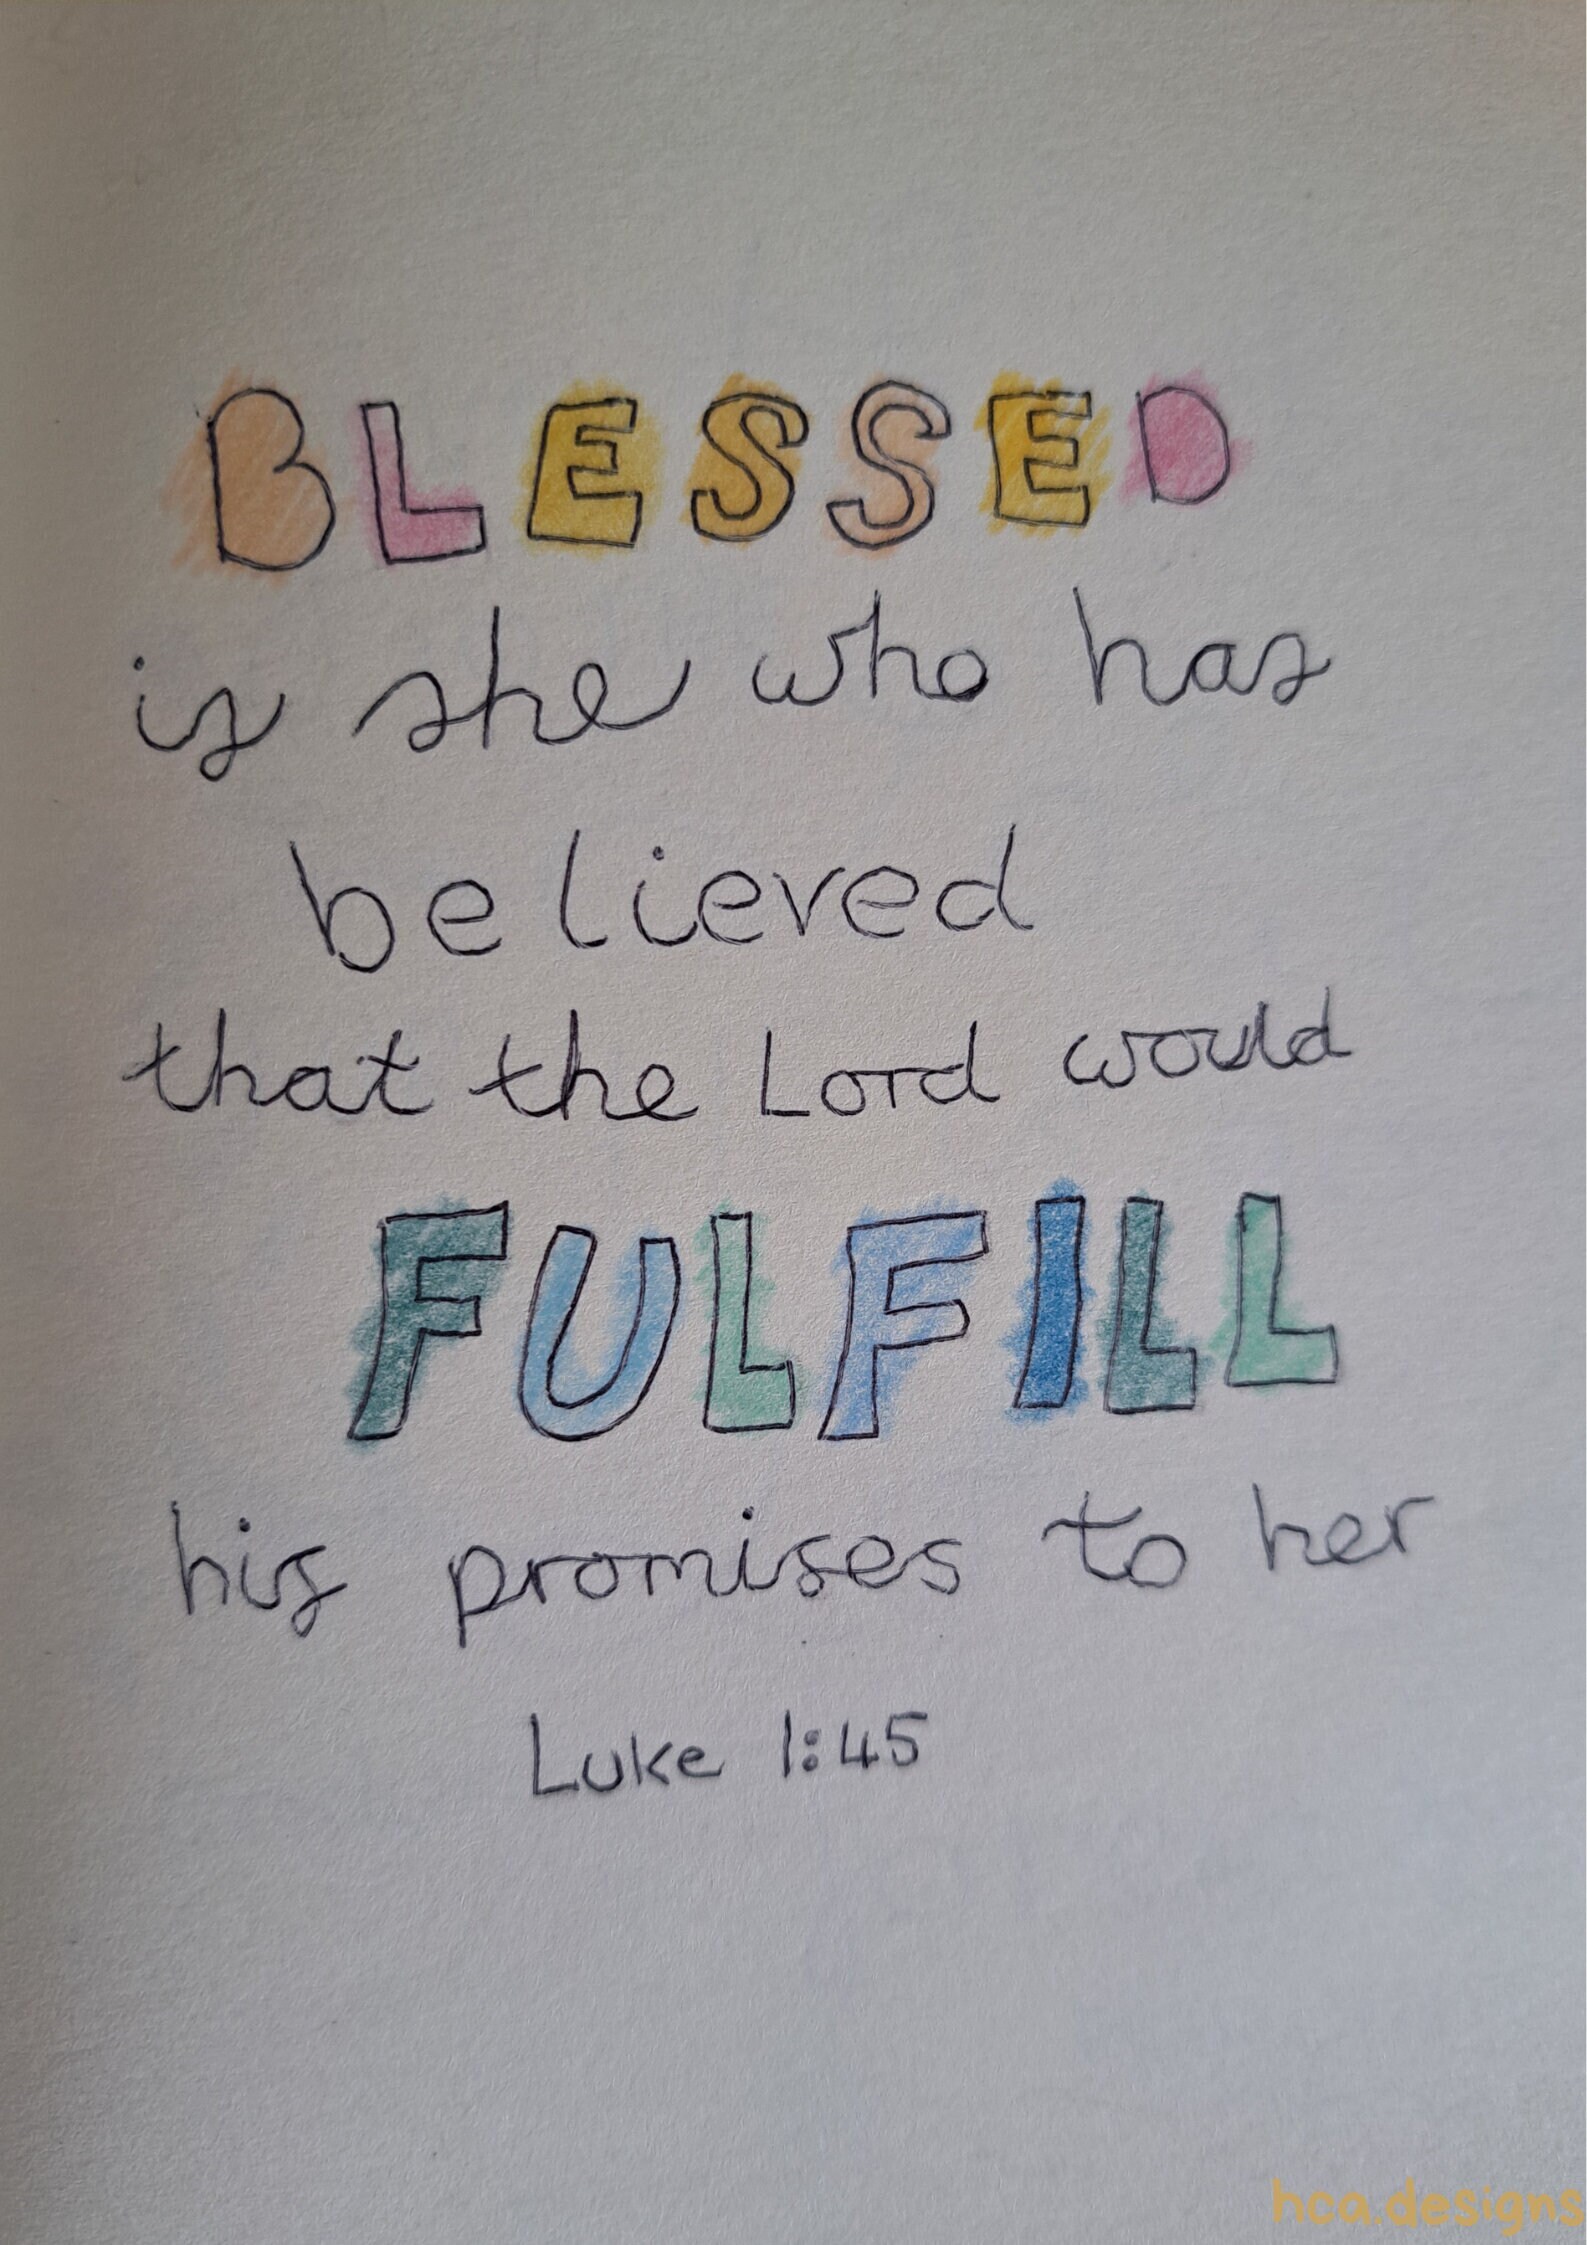 BLESSED
is she who has
believed
that the Lord would
FULFILL
his promises to her
Luke 1:45
hca.designs